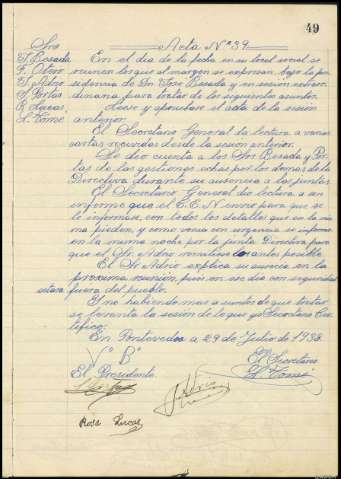 49
Acta Nº 39
Sres
J. Besada En el día de la fecha en su local social se
F. Otero reunen los que al margen se expresan, bajo la pre
S. Adrio sidencia de Dn Jose Besada y en sesión
J. Portas dinaria para tratar de los siguientes asuntos.
R. Lucas, Leese y apruebase el acta de la sesión
L. Tomé anterior.
El Secretario General da lectura a varias
cartas recividas desde la sesión anterior.
Se dio cuenta a los Srs Besada y Por
tas de las gestiones echas por los demas de la
Directiva durante su ausencia a las juntas
El Secretario General dio lectura a un
informe que el C.E.N. envió para que se
le informase, con todos los detalles que en la mis
ma pieden, y como versa con urgencia se informo
en la misma noche por la junta Directiva para
que el Sr. Adrio remitiese lo antes posible.
El Sr Adrio explica su ausencia en la
proxima reunión, pues en ese dia con seguridad
estara fuera del pueblo.
Y no habiendo mas asuntos de que tratar
se levanta la sesión de lo que yo Secretario Cer
tifico:
En Pontevedra a 29 de Julio de 1935.
Vº Bº
El Secretario
El Presidente
L. Tomé
S. Adrio
Rosa Lucas